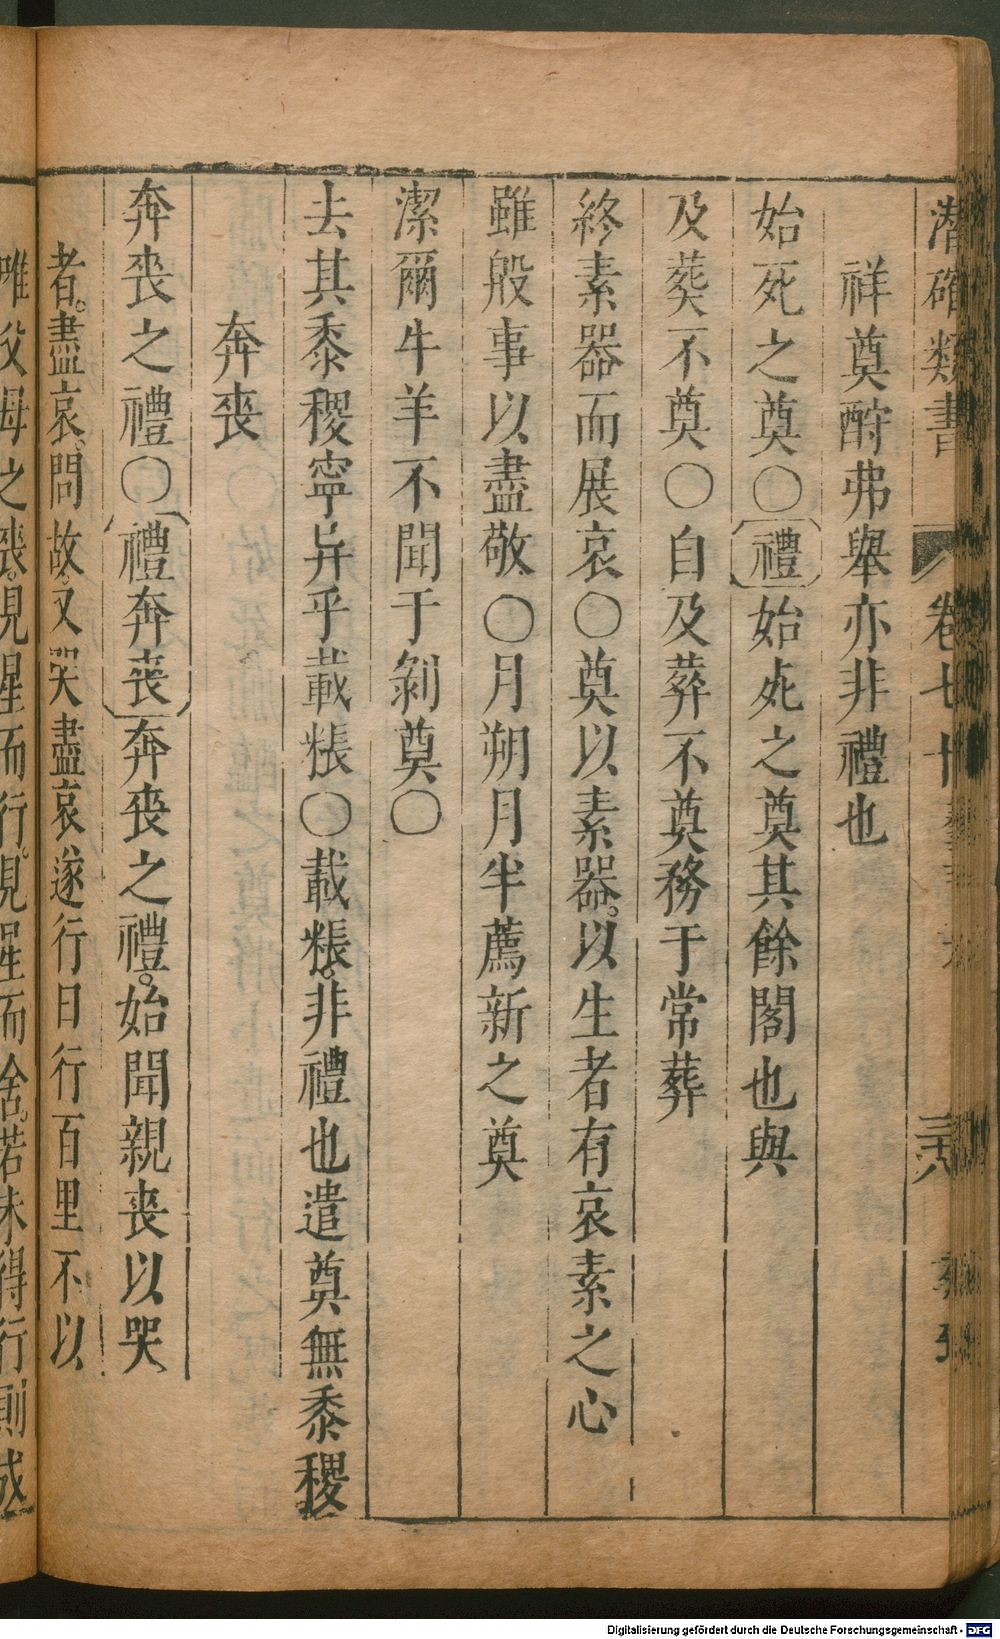 潛確類書 卷七十 三八
祥奠酹弗舉亦非禮也
始死之奠○禮始死之奠其餘閣也與
及葬不奠○自及葬不奠務于常葬
終素器而展哀○奠以素器以生者有哀素之心
雖殷事以盡敬○月朔月半薦新之奠
潔爾牛羊不聞于剝奠○
去其黍稷寧旡乎載粻○載粻非禮也遣奠無黍稷
奔喪
奔喪之禮○禮奔喪奔喪之禮始聞親喪以哭
者盡哀問故又哭盡哀遂行日行百里不以
唯父母之喪見星而行見星而舍若未得行則成
Digitalisierung gefördert durch die Deutsche Forschungsgemeinschaft - DFG